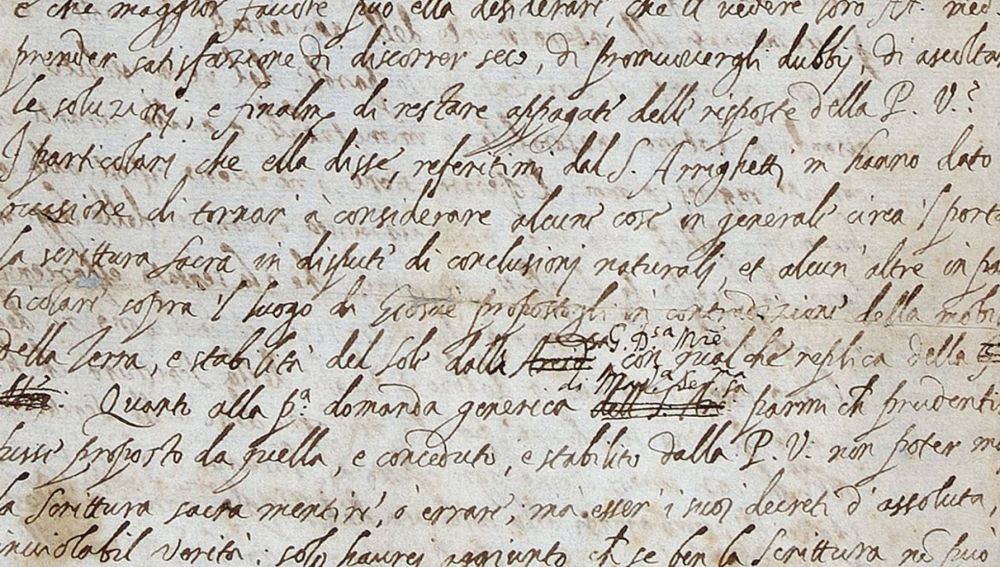 e che maggior favore può ella desiderare, che il vedere loro AA. med
prender satisfazione di discorrer seco, di promuovergli dubbij, di ascolta
le soluzioni, e finalm di restare appagate delle risposte della P. V.?
I particolari, che ella disse, referitimi dal S. Arrighetti m hanno dato
occasione di tornar à considerare alcune cose in generale circa 'l porta
la scrittura sacra in dispute di conclusioni naturali, et alcun' altre in pa
ticolare sopra 'l luogo di Giosuè propostogli in contradizione della mobil
della Terra, e stabilità del Sole dalla G. D.sa M.re con qualche replica della
di Mad.a Ser.ma
Quanto alla p.a domanda generica parmi ch prudente
fusse proposto da quella, e conceduto, e stabilito dalla P. V. non poter m
la Scrittura sacra mentire, ò errare, mà esser i suoi decreti d' assoluta,
inviolabil verità: solo haurei aggiunto ch se ben la Scrittura nõ può